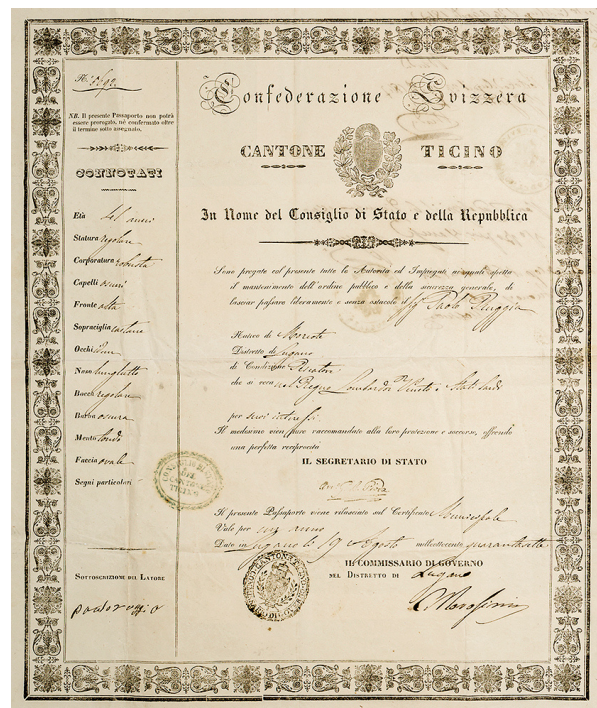 N.
NB. Il presente Passaporto non potrà
essere prorogato, nè confermato oltre
il termine sotto assegnato.
CONNOTATI
Età 41 anni
Statura regolare
Corporatura robusta
Capelli oscuri
Fronte alta
Sopraciglia castane
Occhi
Naso lunghetto
Bocca regolare
Barba oscura
Mento tondo
Faccia ovale
Segni particolari
SOTTOSCRIZIONE DEL LATORE
paolo ruggia
Confederazione Svizzera
CANTONE TICINO
In Nome del Consiglio di Stato e della Repubblica
Sono pregate col presente tutte le Autorità ed Impiegati ai quali spetta
il mantenimento dell'ordine pubblico e della sicurezza generale, di
lasciar passare liberamente e senza ostacolo il Sig Paolo Ruggia
Nativo di Morcote
Distretto di Lugano
di Condizione
che si reca nel Regno Lombardo Veneto e Stati Sardi
per suoi interessi
Il medesimo vien pure raccomandato alla loro protezione e soccorso, offrendo
una perfetta reciprocità
IL SEGRETARIO DI STATO
Il presente Passaporto viene rilasciato sul Certificato Municipale
Vale per un anno
Dato in Lugano li 19 Agosto milleottocento
IL COMMISSARIO DI GOVERNO
NEL DISTRETTO DI Lugano